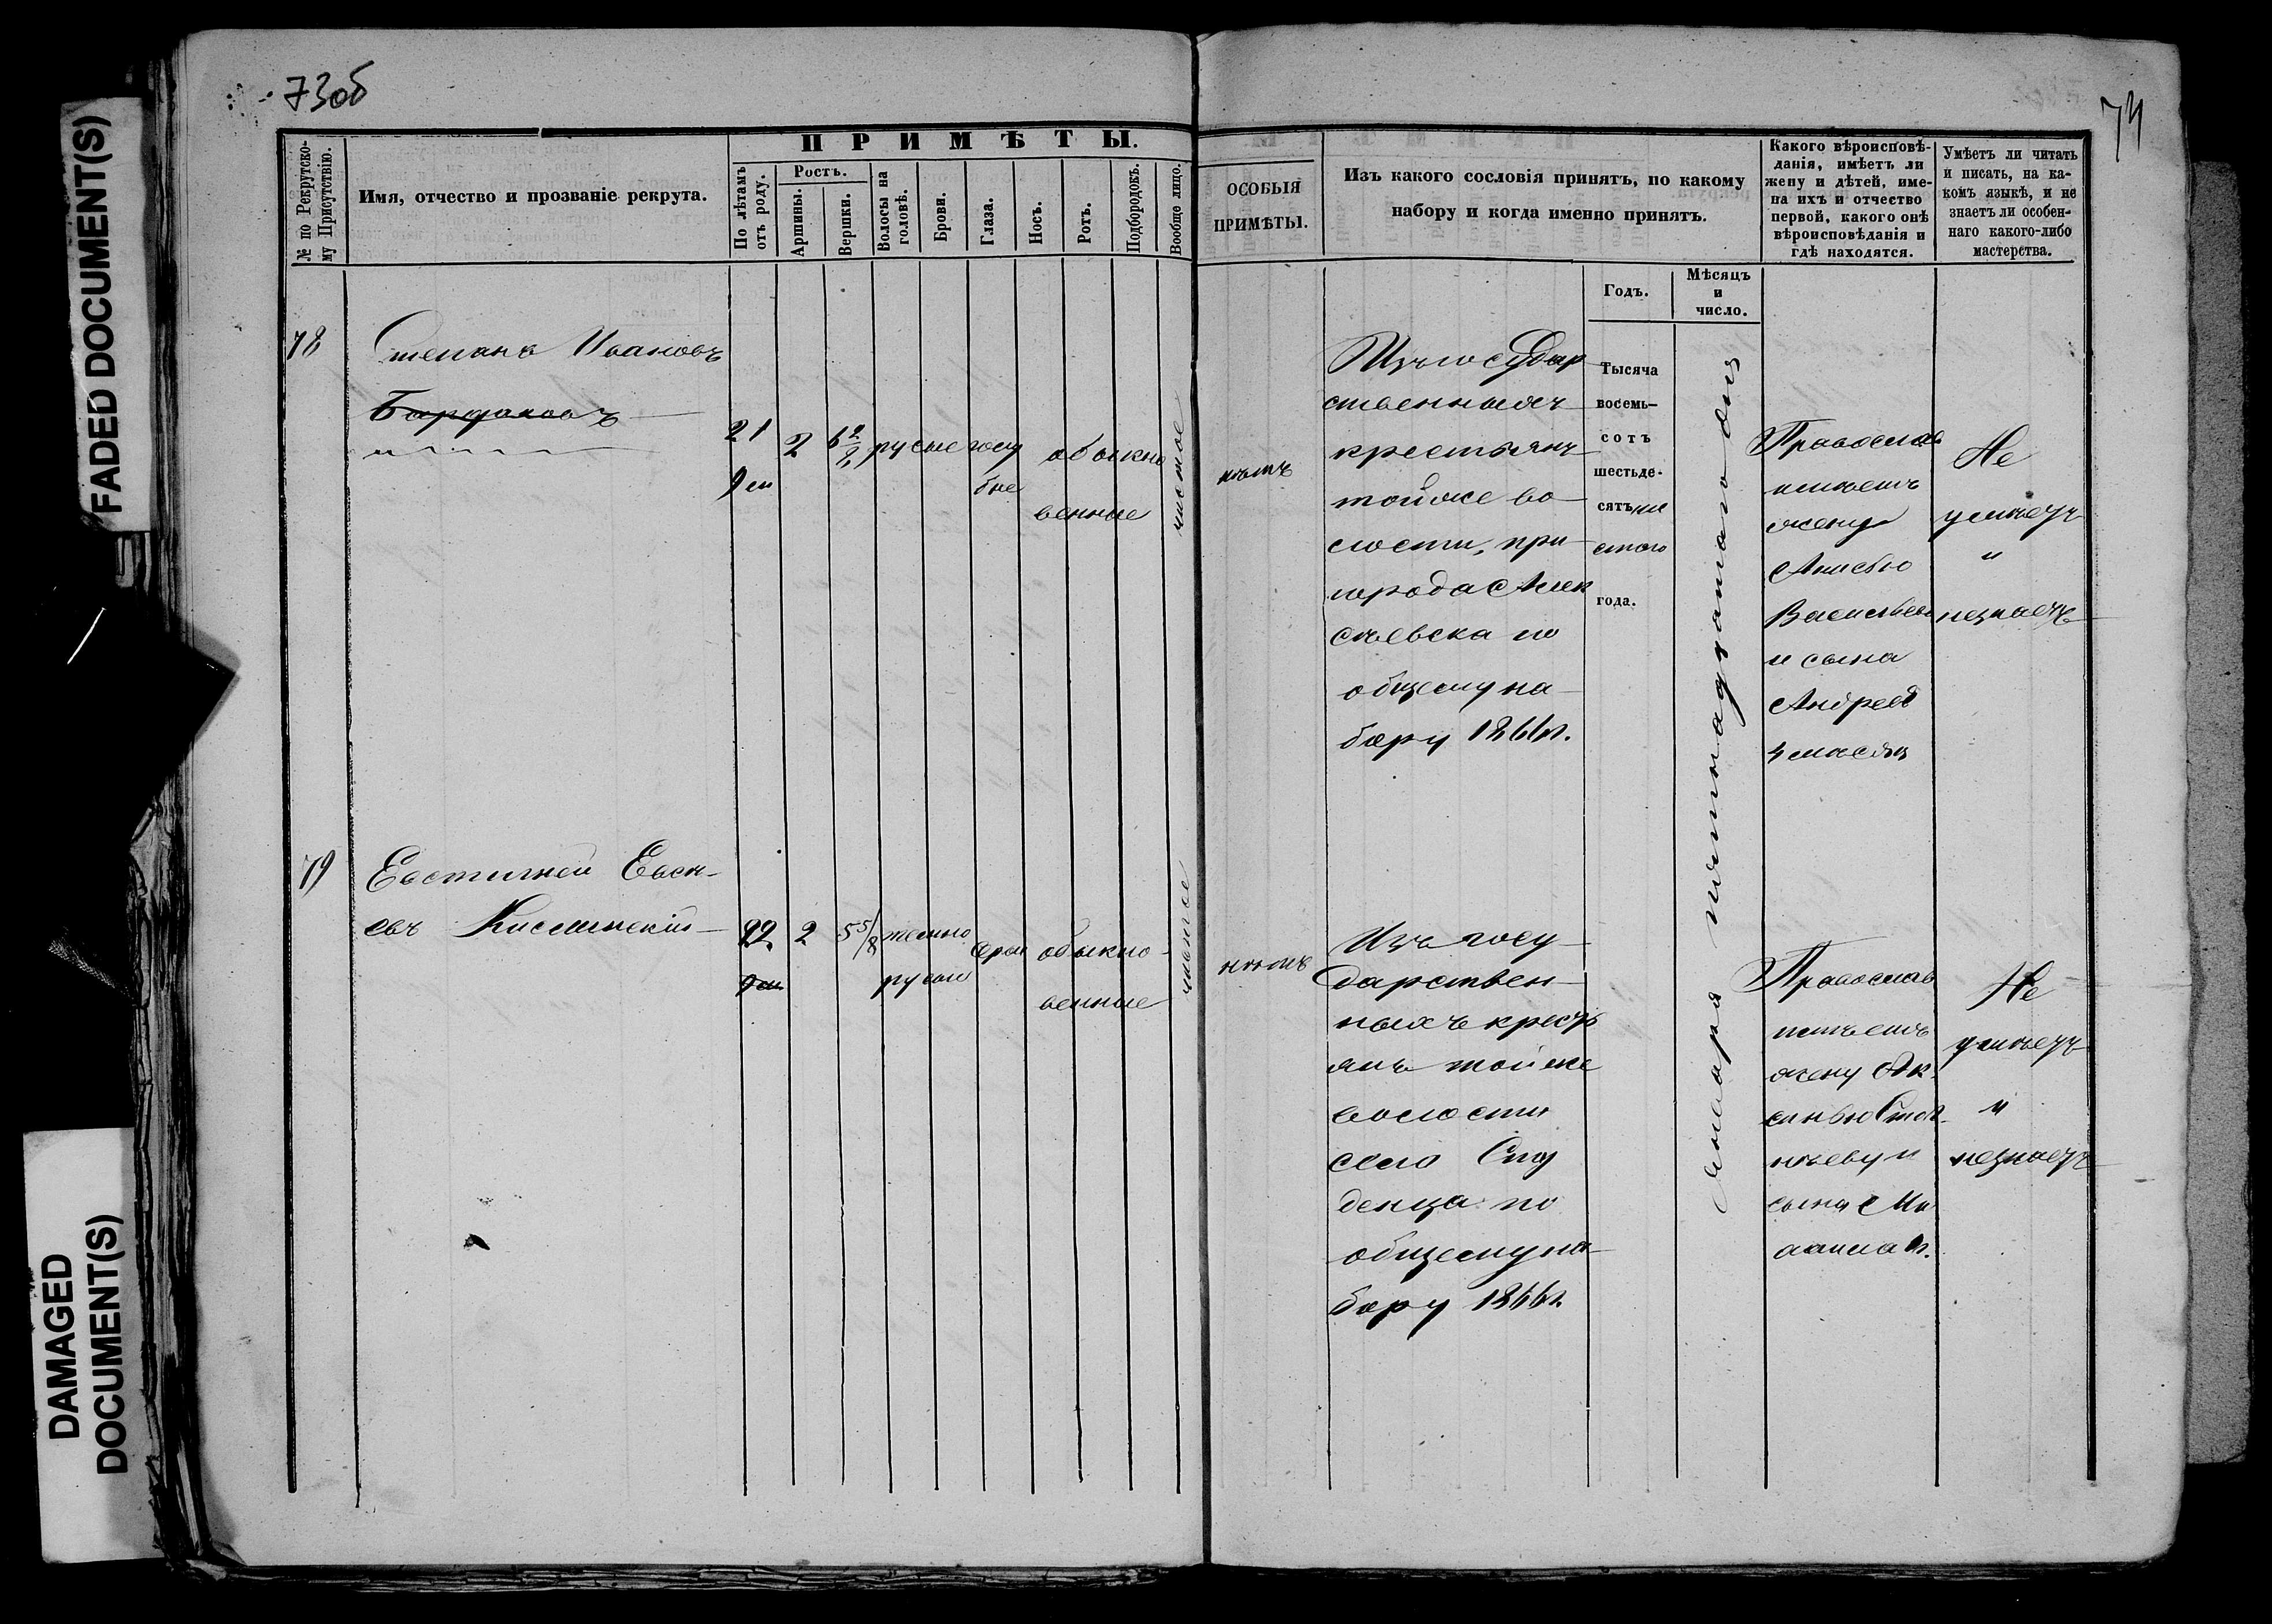 FADED DOCUMENT(S)
DAMAGED
DOCUMENT(S)
73об
74
№ по Рекрутско-
му Присутствію.
Имя, отчество и прозваніе рекрута.
ПРИМѢТЫ.
По лѣтамъ
отъ роду.
Ростъ.
Аршины.
Вершки.
Волосы на
головѣ.
Брови.
Глаза.
Носъ.
Ротъ.
Подбородокъ.
Вообще лицо.
ОСОБЫЯ
ПРИМѢТЫ.
Изъ какого сословія принятъ, по какому
набору и когда именно принятъ.
Годъ.
Мѣсяцъ
и
число.
Какого вѣроисповѣ-
данія, имѣетъ ли
жену и дѣтей, име-
на ихъ и отчество
первой, какого онѣ
вѣроисповѣданія и
гдѣ находятся.
Умѣетъ ли читать
и писать, на ка-
комъ языкѣ, и не
знаетъ ли особен-
наго какого-либо
мастерства.
78
Степанъ Ивановъ
21
2
6 2/8
русые
голу
бые
обыкно
венные
чистое
нѣтъ
Изъ государ
ственныхъ
крестьянъ
тойже во-
лости, при-
города Алек
сѣевска по
общему на-
бору 1866 г.
Тысяча
восемь-
сотъ
шестьде-
сятъ ше
стого
года.
Января пятнадцатого дня
Православ
имѣетъ
жену
Васильев
и сына
Андрея
4 мѣсяц
Не
умѣетъ
и
незнаетъ
79
Евстигней Евсѣ-
евъ Кислинскій
22
2
5 5/8
темно
русые
серые
обыкно-
венные
чистое
нѣтъ
Изъ госу-
дарствен-
ныхъ кресть
янъ тойже
волости
села Сту
денца по
общему на-
бору 1866 г.
Православ
имѣетъ
жену Ак-
синью
и
сына
Не
умѣетъ
и
незнаетъ